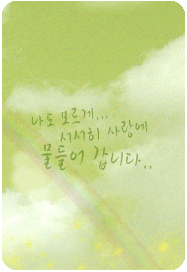 나도 모르게...
서서히 사랑에
물들어 갑니다..